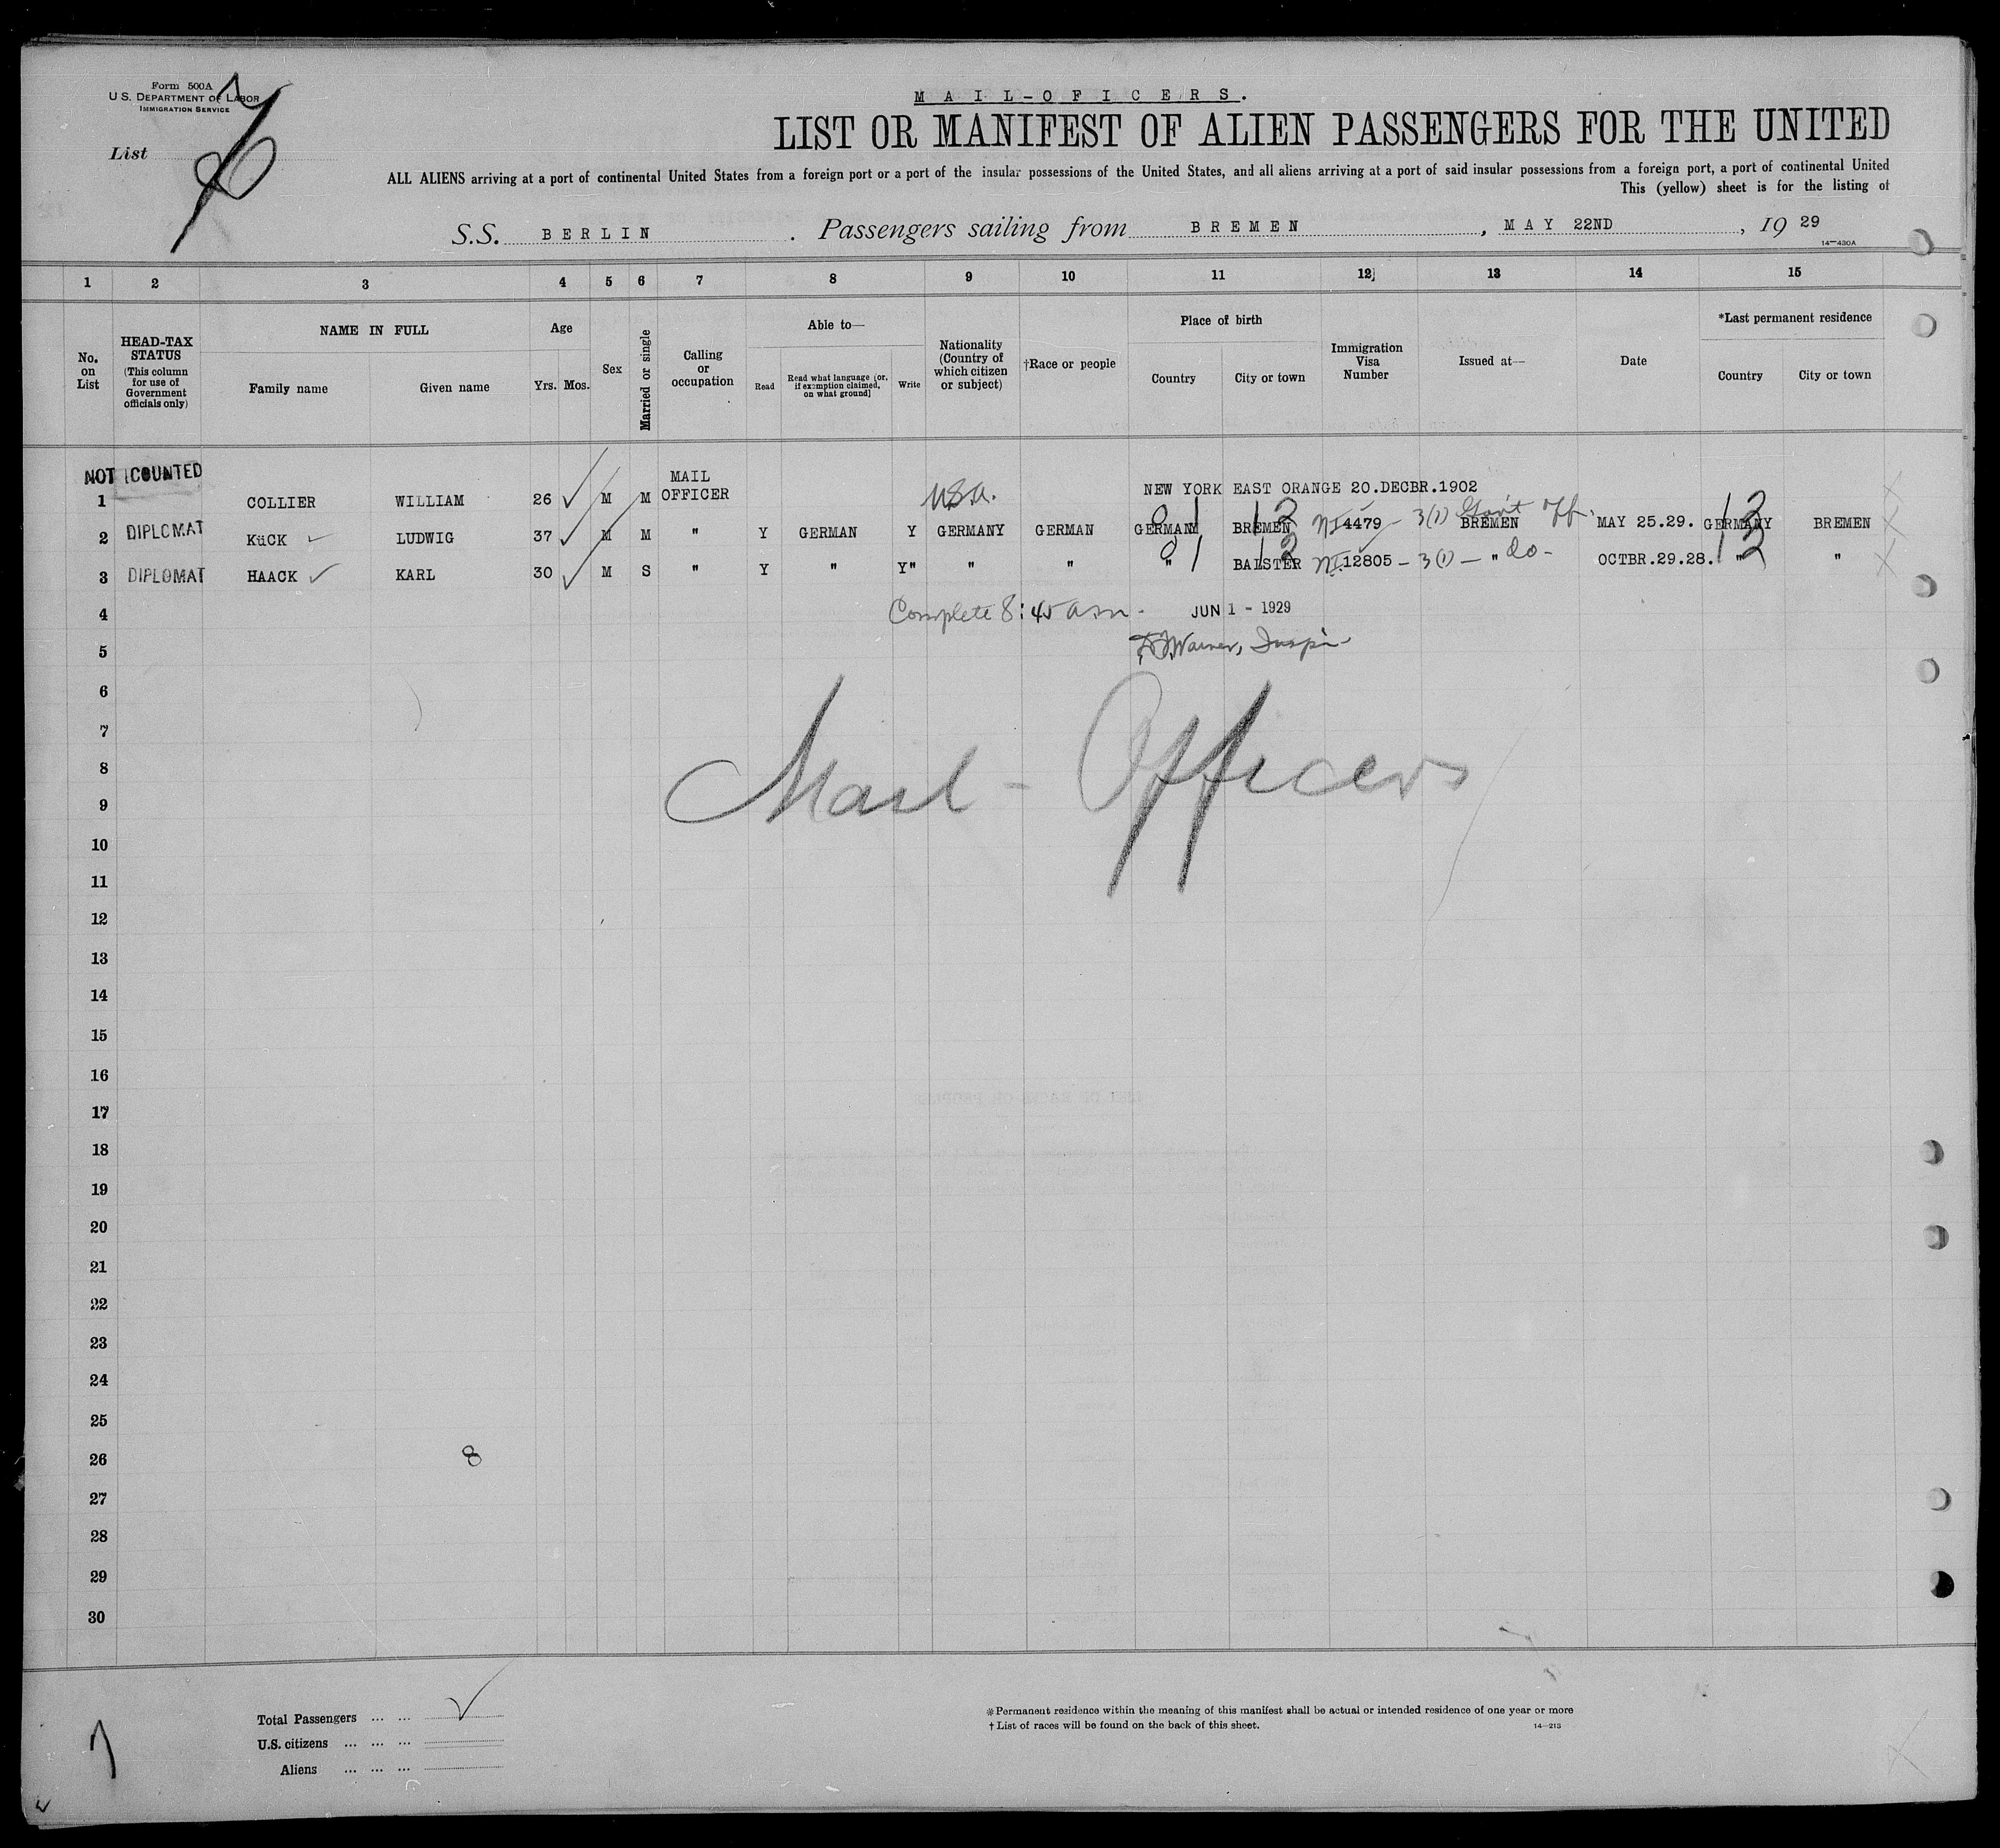 Form 500A
U.S. DEPARTMENT OF LABOR
IMMIGRATION SERVICE
List
MAIL-OFFICERS.
LIST OR MANIFEST OF ALIEN PASSENGERS FOR THE UNITED
ALL ALIENS arriving at a port of continental United States from a foreign port or a port of the insular possessions of the United States, and all aliens arriving at a port of said insular possessions from a foreign port, a port of continental United
This (yellow) sheet is for the listing of
S.S. BERLIN . Passengers sailing from BREMEN , MAY 22ND , 19 29
14—430A
1 2 3 4 5 6 7 8 9 10 11 12 13 14 15
No. on List
HEAD-TAX STATUS (This column for use of Government officials only)
NAME IN FULL
Family name Given name
Age
Yrs. Mos.
Sex
Married or single
Calling or occupation
Able to—
Read
Read what language [or, if exemption claimed, on what ground]
Write
Nationality (Country of which citizen or subject)
†Race or people
Place of birth
Country City or town
Immigration Visa Number
Issued at—
Date
*Last permanent residence
Country City or town
NOT COUNTED
1 COLLIER WILLIAM 26 M M MAIL OFFICER USA. NEW YORK EAST ORANGE 20.DECBR.1902
2 DIPLOMAT KüCK LUDWIG 37 M M " Y GERMAN Y GERMANY GERMAN GERMANY 01 BREMEN 12 NI 4479 - 3(1) Gov't off. BREMEN MAY 25.29. GERMANY 12 BREMEN
3 DIPLOMAT HAACK KARL 30 M S " Y " Y" " " " 01 BALSTER 12 NI 12805 - 3(1) - " do - OCTBR.29.28. " 12 "
4 Complete 8:45 am. JUN 1 - 1929
5 Warner, Inspr
6
7
8
Mail - Officers
9
10
11
12
13
14
15
16
17
18
19
20
21
22
23
24
25
26 8
27
28
29
30
Total Passengers ... ...
U.S. citizens ... ... ...
Aliens ... ... ...
*Permanent residence within the meaning of this manifest shall be actual or intended residence of one year or more
†List of races will be found on the back of this sheet.
14—213